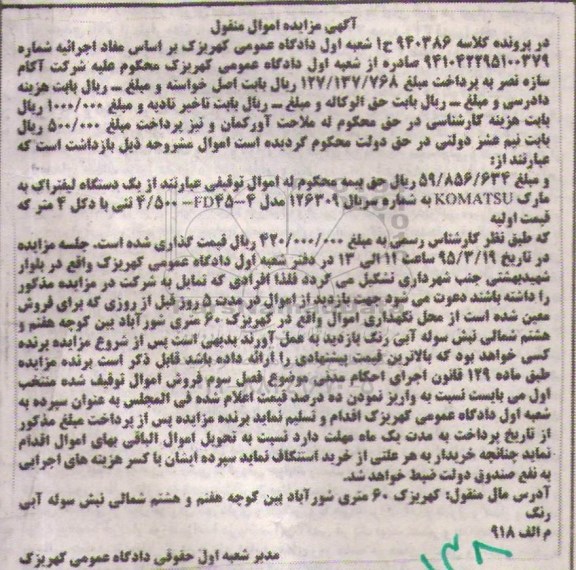 آگهی مزایده اموال منقول
در پرونده کلاسه ۹۴۰۳۸۶ ح۱ شعبه اول دادگاه عمومی کهریزک بر اساس مفاد اجرائیه شماره
۹۴۱۰۴۲۲۹۵۱۰۰۳۷۹ صادره از شعبه اول دادگاه عمومی کهریزک محکوم علیه شرکت آکام
سازه نصر به پرداخت مبلغ ۱۲۷/۱۳۷/۷۶۸ ریال بابت اصل خواسته و مبلغ ــ ریال بابت هزینه
دادرسی و مبلغ ــ ریال بابت حق الوکاله و مبلغ ــ ریال بابت تاخیر تادیه و مبلغ ۱۰۰۰/۰۰۰ ریال
بابت هزینه کارشناسی در حق محکوم له ملاحت آورکمان و نیز پرداخت مبلغ ۵۰۰/۰۰۰ ریال
بابت نیم عشر دولتی در حق دولت محکوم گردیده است اموال مشروحه ذیل بازداشت است که
عبارتند از:
و مبلغ ۵۹/۸۵۶/۶۳۴ ریال حق بیمه محکوم له اموال توقیفی عبارتند از یک دستگاه لیفتراک به
مارک KOMATSU به شماره سریال ۱۲۶۳۰۹ مدل FD۴۵-۴– ۴/۵۰۰ تنی با دکل ۴ متر که
قیمت اولیه
که طبق نظر کارشناس رسمی به مبلغ ۴۲۰/۰۰۰/۰۰۰ ریال قیمت گذاری شده است. جلسه مزایده
در تاریخ ۹۵/۳/۱۹ ساعت ۱۱ الی ۱۳ در دفتر شعبه اول دادگاه عمومی کهریزک واقع در بلوار
شهیدبهشتی جنب شهرداری تشکیل می گردد فلذا افرادی که تمایل به شرکت در مزایده مذکور
را داشته باشند دعوت می شود جهت بازدید از اموال در مدت ۵ روز قبل از روزی که برای فروش
معین شده است از محل نگهداری اموال واقع در کهریزک ۶۰ متری شورآباد بین کوچه هفتم و
هشتم شمالی نبش سوله آبی رنگ بازدید به عمل آورند بدیهی است پس از شروع مزایده برنده
کسی خواهد بود که بالاترین قیمت پیشنهادی را ارائه داده باشد قابل ذکر است برنده مزایده
طبق ماده ۱۲۹ قانون اجرای احکام مدنی موضوع فصل سوم فروش اموال توقیف شده منتخب
اول می بایست نسبت به واریز نمودن ده درصد قیمت اعلام شده فی المجلس به عنوان سپرده به
شعبه اول دادگاه عمومی کهریزک اقدام و تسلیم نماید برنده مزایده پس از پرداخت مبلغ مذکور
از تاریخ پرداخت به مدت یک ماه مهلت دارد نسبت به تحویل اموال الباقی بهای اموال اقدام
نماید چنانچه خریدار به هر علتی از خرید استنکاف نماید سپرده ایشان با کسر هزینه های اجرایی
به نفع صندوق دولت ضبط خواهد شد.
آدرس مال منقول: کهریزک ۶۰ متری شورآباد بین کوچه هفتم و هشتم شمالی نبش سوله آبی
رنگ
م الف ۹۱۸
مدیر شعبه اول حقوقی دادگاه عمومی کهریزک